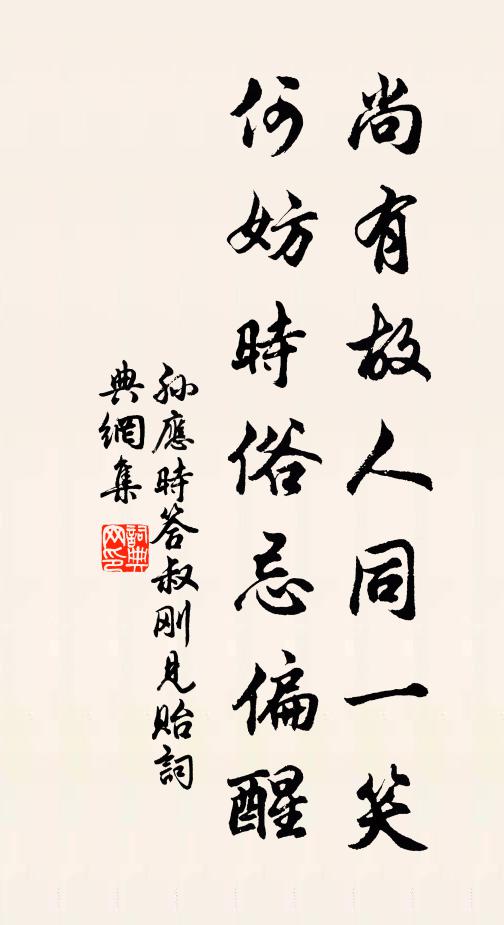 尚有故人同一笑
何妨時俗忌偏醒
孫應時答叔剛見貽詞
典網集
詞典网印